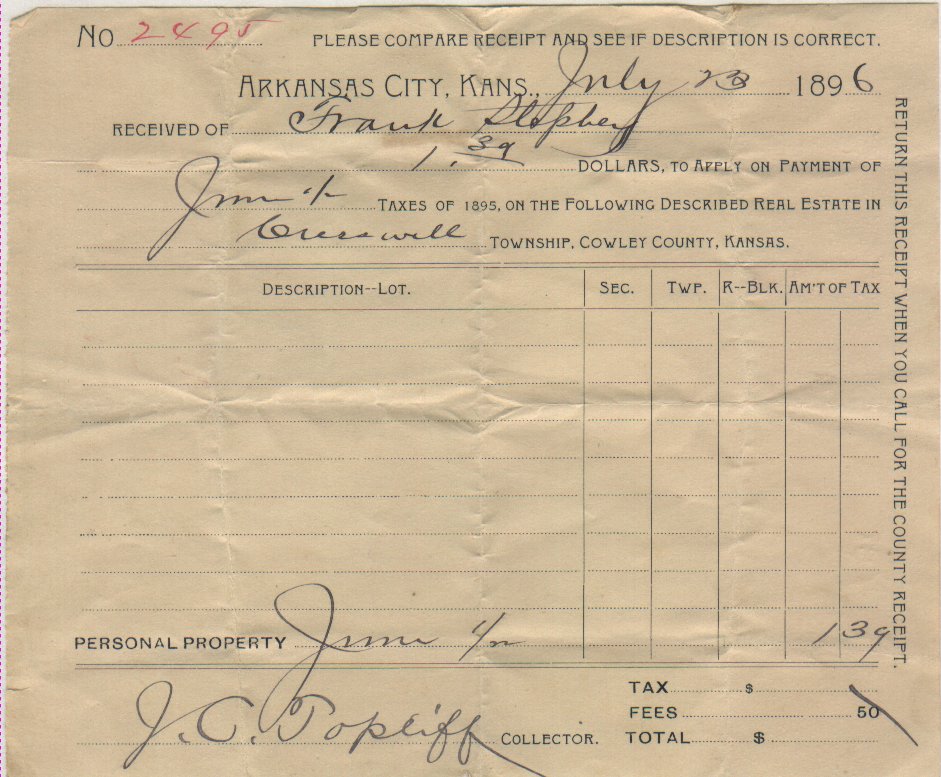 No 2495 PLEASE COMPARE RECEIPT AND SEE IF DESCRIPTION IS CORRECT.
ARKANSAS CITY, KANS., July 23 1896
RECEIVED OF Frank
1.39 DOLLARS, TO APPLY ON PAYMENT OF
June 1/2 TAXES OF 1895, ON THE FOLLOWING DESCRIBED REAL ESTATE IN
Cresswell TOWNSHIP, COWLEY COUNTY, KANSAS.
DESCRIPTION--LOT. SEC. TWP. R--BLK. AM'T OF TAX
PERSONAL PROPERTY June 1/2 1 39
TAX $
FEES 50
J. C. Topliff COLLECTOR. TOTAL $
RETURN THIS RECEIPT WHEN YOU CALL FOR THE COUNTY RECEIPT.